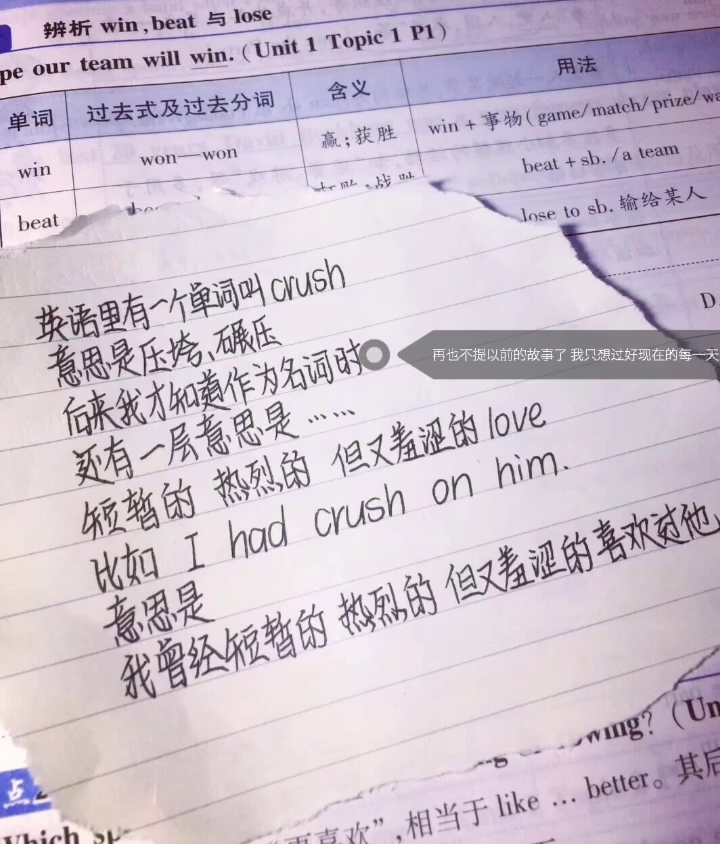 辨析 win,beat 与 lose
pe our team will win. (Unit 1 Topic 1 P1)
单词 过去式及过去分词 含义 用法
win won—won 赢；获胜 win + 事物(game/match/prize/wa
beat beat + sb. /a team
lose to sb. 输给某人
D
英语里有一个单词叫 crush
意思是压垮、碾压
后来我才知道作为名词时
还有一层意思是……
短暂的 热烈的 但又羞涩的 love
比如 I had crush on him.
意思是
我曾经短暂的 热烈的 但又羞涩的喜欢过他、
再也不提以前的故事了 我只想过好现在的每一天
wing? (Un
点
Which sp
"更喜欢",相当于 like … better。其后